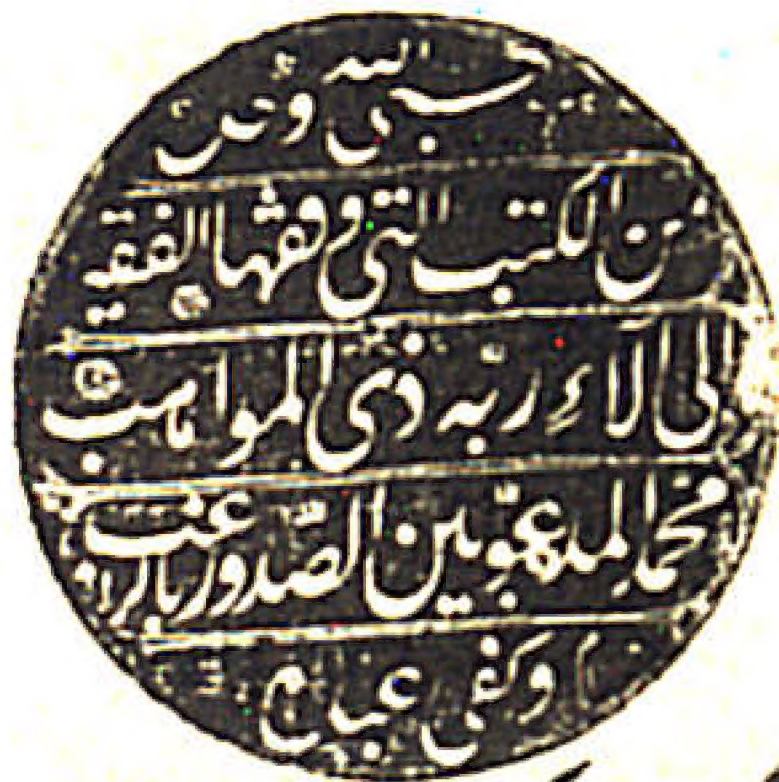 حسبي الله وحده
من الكتب التي وقفها الفقير
الى آلاء ربه ذي المواهب
محمد المدعو بين الصدور بالراغب
وكفى عباده